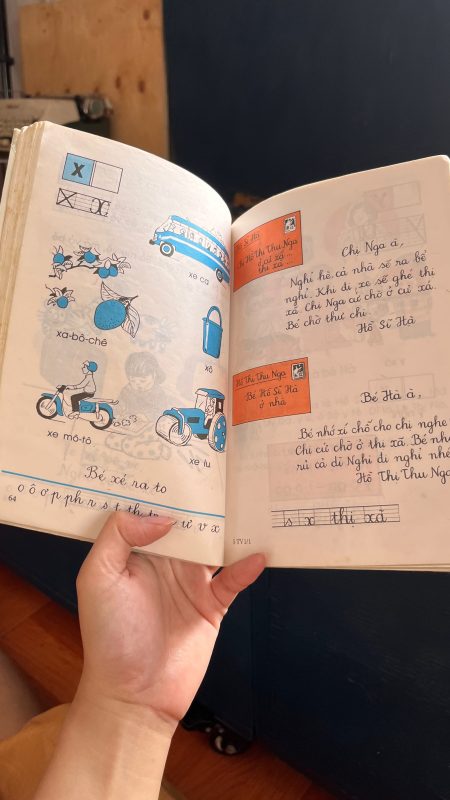 x
x x
xe ca
xa-bô-chê
xô
xe mô-tô
xe lu
Bé xé ra to
o ô ơ p ph r s t th tr ư v x
64
Hồ Sĩ Hà
Hồ Thị Thu Nga
ở cư xá
thị xã ...
Chị Nga ạ,
Nghỉ hè, cả nhà sẽ ra bể
nghỉ. Khi đi, xe sẽ ghé thị
xã. Chị Nga cứ chờ ở cư xá.
Bé chờ thư chị.
Hồ Sĩ Hà
Hồ Thị Thu Nga
Bé Hồ Sĩ Hà
ở nhà
Bé Hà à,
Bé nhớ xí chỗ cho chị nghe
Chị cứ chờ ở thị xã. Bé nhớ
rủ cả dì Nghi đi nghỉ nhé
Hồ Thị Thu Nga
s x thị xã
5 TV1/1